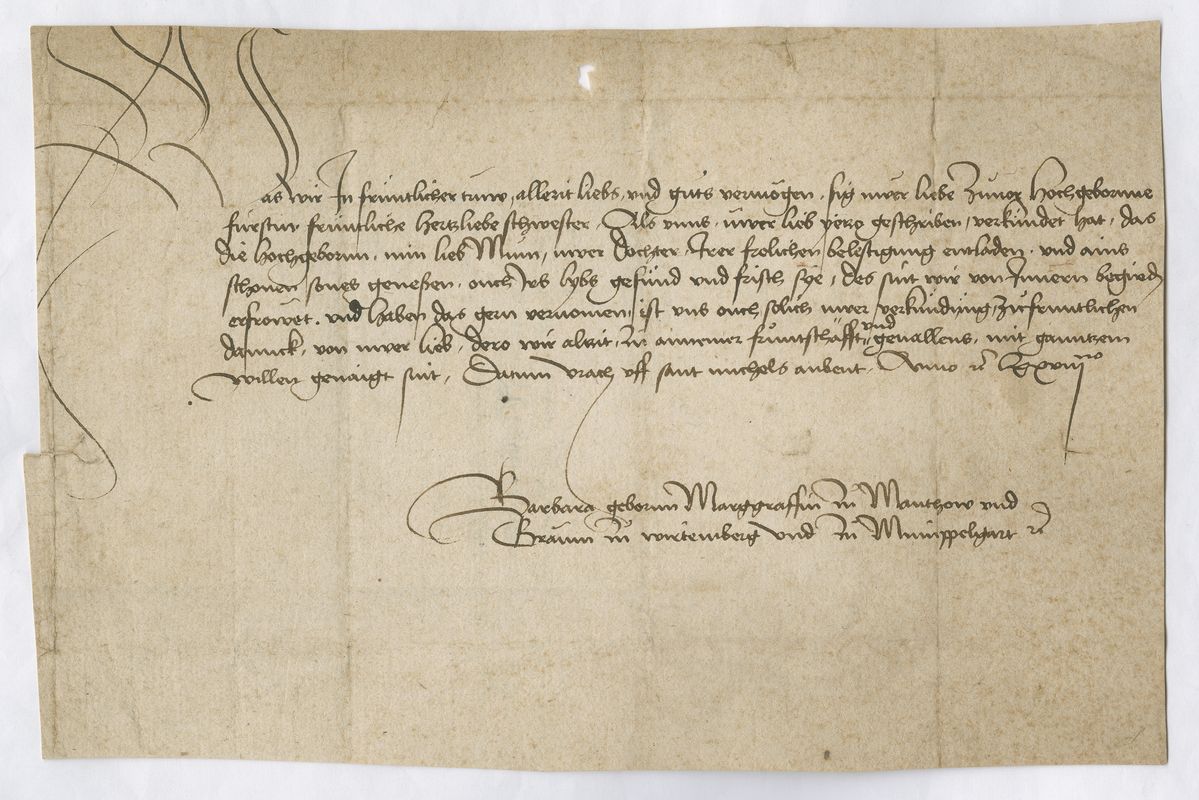 Was wir In früntlicher truw, allerzit liebs, und guts vermögen, sig uwer liebe Zuuor Hochgeborune
fürstin früntliche Hertzliebe schwester, Als unns, uwer lieb yetzo geschriben, verkündet hat, das
die hochgeborn, min lieb Mum, uwer dochter, Irer frolichen belestigung entladen, und ains
schonen sones genesen, ouch Irs lybs gesünd und frisch sye, des sint wir von Innern begirden
erfröwet, und haben das gern vernomen, ist uns ouch solich uwer verkündung, zü früntlichem
danck, von uwer lieb, dero wir alzit, zu aininer früntschafft, und geuallens, mit ganntzem
willen genaigt sint, Datum Urach uff sant michels aubent, Anno etc LXXviiino
Barbara geborun Marggraffin zu Manthow und
Gräuin zu wirtemberg und zu Mümppelgart etc